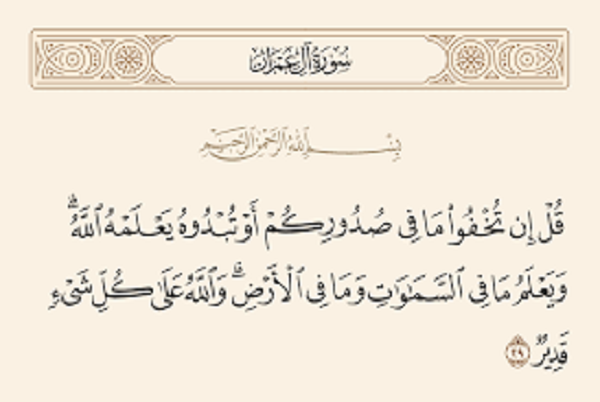 سُورَةُ آلِ عِمْرَانَ
بِسْمِ اللَّهِ الرَّحْمَٰنِ الرَّحِيمِ
قُلْ إِن تُخْفُوا۟ مَا فِى صُدُورِكُمْ أَوْ تُبْدُوهُ يَعْلَمْهُ ٱللَّهُ ۗ
وَيَعْلَمُ مَا فِى ٱلسَّمَـٰوَٰتِ وَمَا فِى ٱلْأَرْضِ ۗ وَٱللَّهُ عَلَىٰ كُلِّ شَىْءٍ
قَدِيرٌ ٢٩